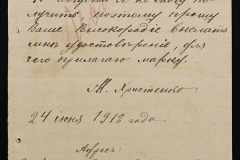 лучить поэтому прошу
Ваше Высокородіе выслать
мнѣ удостовѣреніе, для
чего прилагаю марку.
М. Христенко
24 іюня 1912 года
Адресъ: